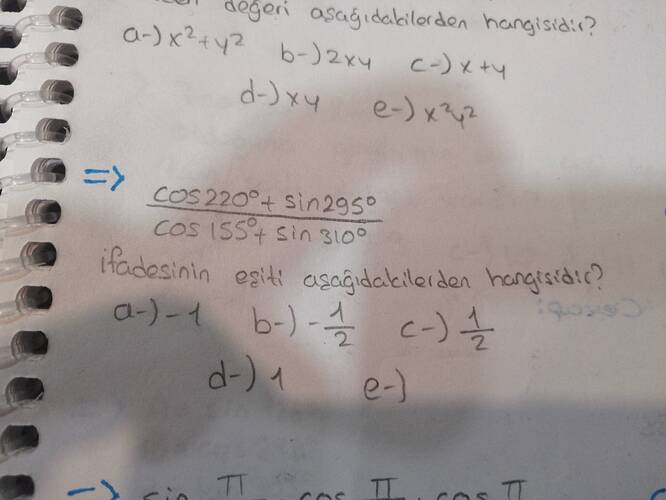 değeri aşağıdakilerden hangisidir?
a-) x²+y² b-) 2xy c-) x+y
d-) xy e-) x²y²
=> cos220°+ sin295°
cos 155°+ sin 310°
ifadesinin eşiti aşağıdakilerden hangisidir?
a-) -1 b-) -1/2 c-) 1/2
d-) 1 e-)
=> sin π cos π cos π